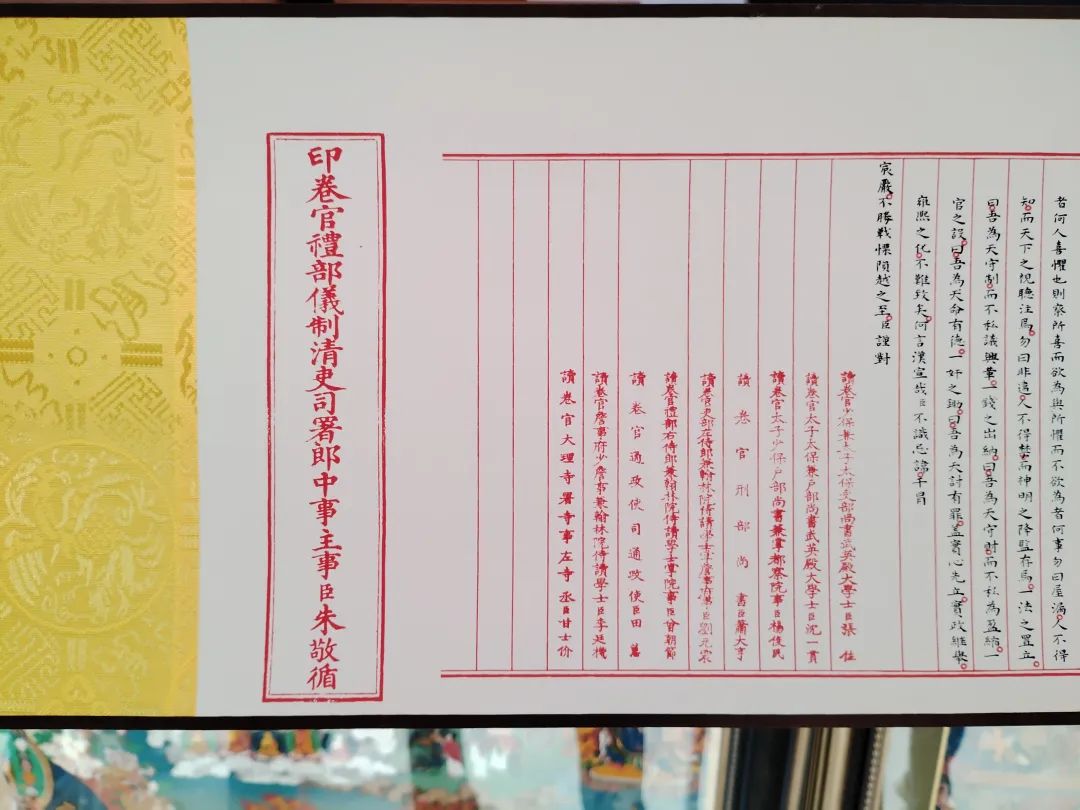 者何人喜懼也則察所喜而欲為與所懼而不欲為者何事勿曰屋漏人不得
知而天下之視聽注焉勿曰非遠人不得禁而神明之降監存焉一法之置立
曰吾為天守制而不私議興革一錢之出納曰吾為天守財而不私為盈縮一
官之設曰吾為天命有德一奸之鋤曰吾為天討有罪蓋實心先立實政繼舉
雍熙之化不難致矣何言漢宣哉臣不識忌諱干冒
宸嚴不勝戰慄隕越之至臣謹對
讀卷官少保兼太子太保吏部尚書武英殿大學士臣張位
讀卷官太子太保兼戶部尚書武英殿大學士臣沈一貫
讀卷官太子少保戶部尚書兼掌都察院事臣楊俊民
讀卷官刑部尚書臣蕭大亨
讀卷官吏部左侍郎兼翰林院侍讀學士掌詹事府事臣劉元震
讀卷官禮部右侍郎兼翰林院侍讀學士掌院事臣曾朝節
讀卷官通政使司通政使臣田蕙
讀卷官詹事府少詹事兼翰林院侍讀學士臣李廷機
讀卷官大理寺署寺事左寺丞臣甘士价
印卷官禮部儀制清吏司署郎中事主事臣朱敬循